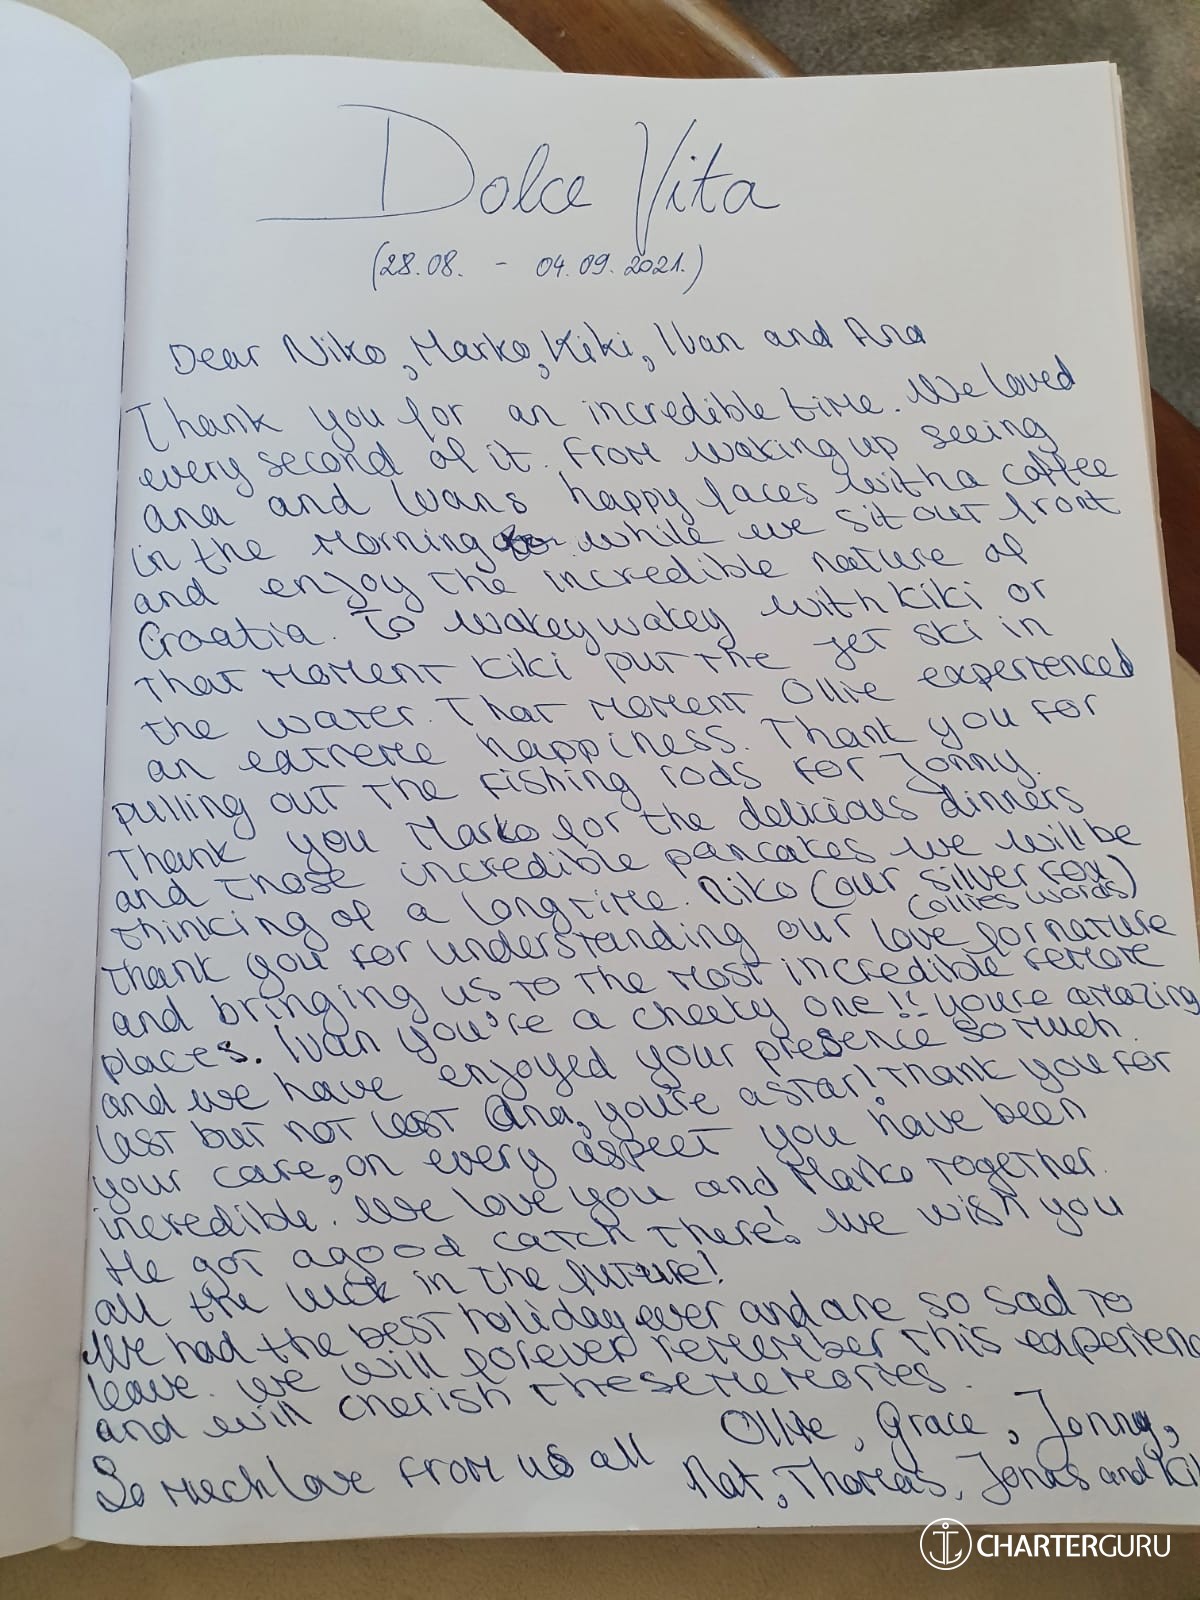 Dolce Vita
(28.08. - 04.09.2021.)
Dear Niko, Marko, Kiki, Ivan and Ana
Thank you for an incredible time. We loved
every second of it. From waking up seeing
ana and Ivans happy faces with a coffee
in the morning while we sit out front
and enjoy the incredible nature of
Croatia. To wakey wakey with kiki or
that moment kiki put the jet ski in
the water. That moment Ollie experienced
an extreme happiness. Thank you for
pulling out the fishing rods for Jonny.
Thank you Marko for the delicious dinners
and those incredible pancakes we will be
thinking of a long time. Niko (our silver fox)
(ollies words)
thank you for understanding our love for nature
and bringing us to the most incredible remote
places. Ivan you're a cheeky one!! youre amazing
and we have enjoyed your presence so much.
last but not least Ana, you're a star! Thank you for
your care, on every aspect you have been
incredible. We love you and Marko together.
He got a good catch there! we wish you
all the luck in the future!
We had the best holiday ever and are so sad to
leave. we will forever remember this experienc
and will cherish these memories.
So much love from us all Ollie, Grace, Jonny,
Nat, Thomas, Jonas and Ki
CHARTERGURU